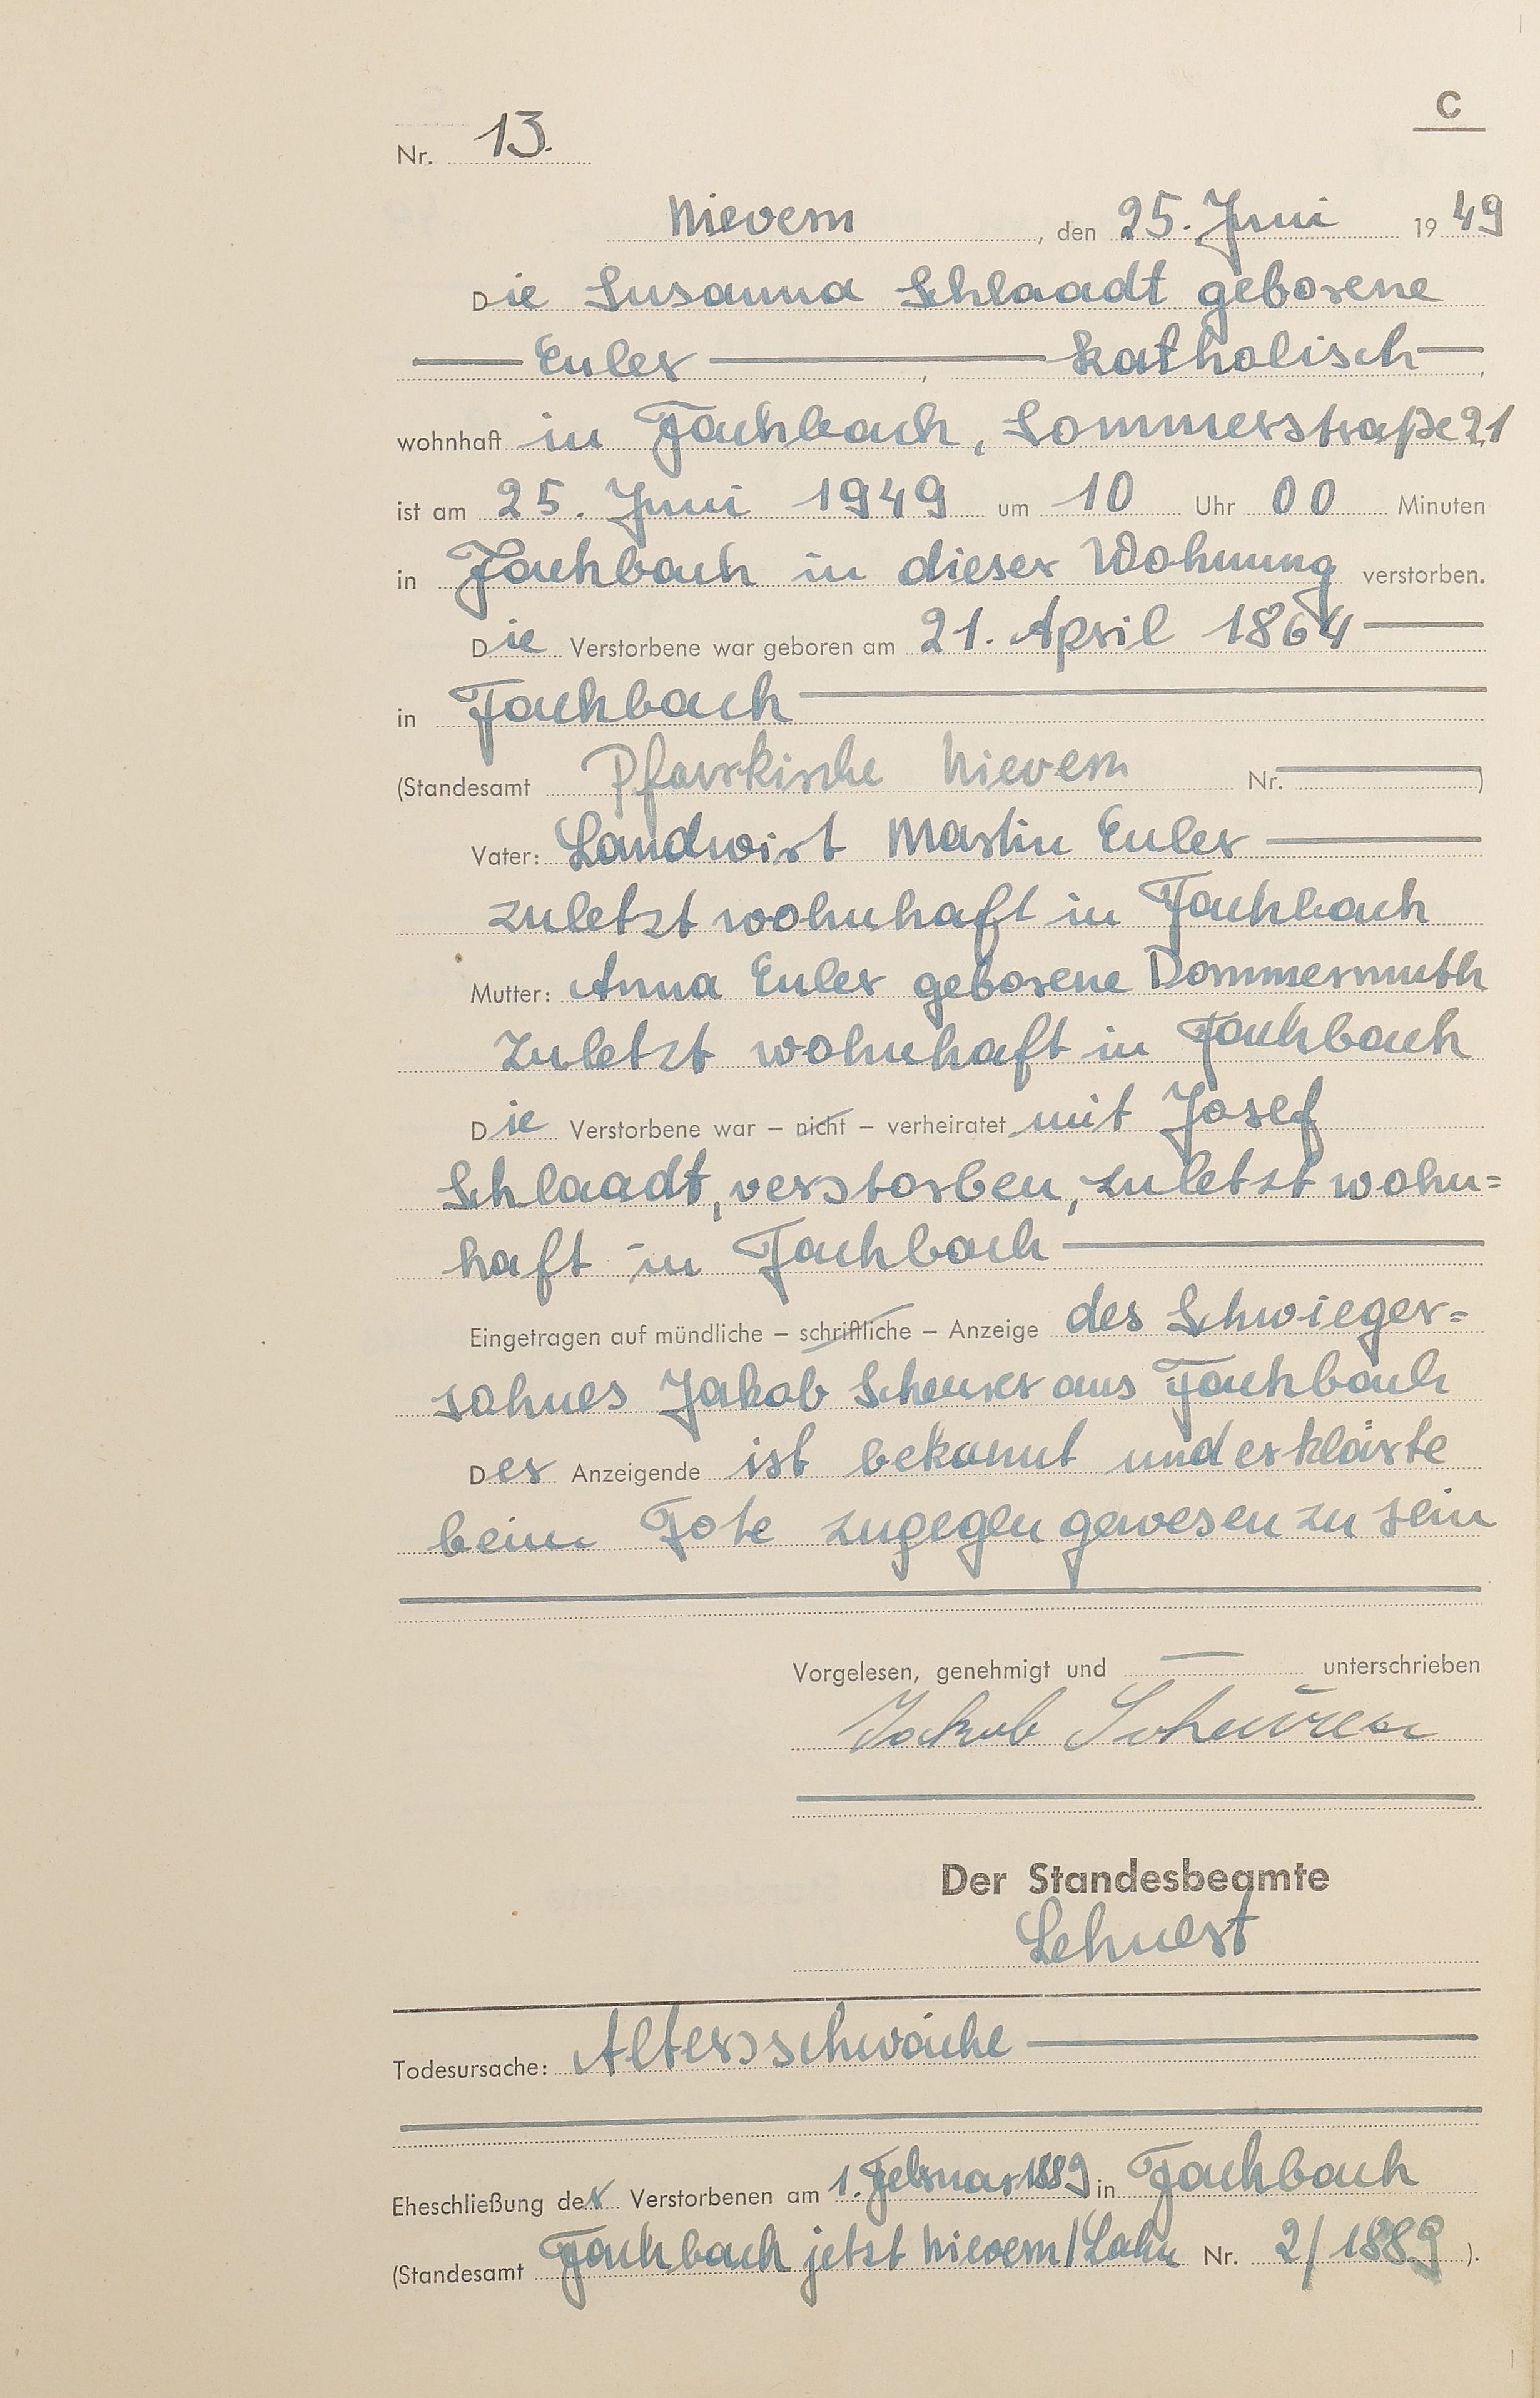 C
Nr. 13.
Nievern, den 25. Juni 1949
Die Susanna Schlaadt geborene
Euler, katholisch,
wohnhaft in Fachbach, Sommerstraße 21
ist am 25. Juni 1949 um 10 Uhr 00 Minuten
in Fachbach in dieser Wohnung verstorben.
Die Verstorbene war geboren am 21. April 1864
in Fachbach
(Standesamt Pfarrkirche Nievern Nr. )
Vater: Landwirt Martin Euler
zuletzt wohnhaft in Fachbach
Mutter: Anna Euler geborene Dommermuth
zuletzt wohnhaft in Fachbach
Die Verstorbene war – nicht – verheiratet mit Josef
Schlaadt, verstorben, zuletzt wohn=
haft in Fachbach
Eingetragen auf mündliche – schriftliche – Anzeige des Schwieger=
sohnes Jakob Scheurer aus Fachbach
Der Anzeigende ist bekannt und erklärte
beim Tote zugegen gewesen zu sein
Vorgelesen, genehmigt und — unterschrieben
Jakob Scheurer
Der Standesbeamte
Lehnert
Todesursache: Altersschwäche
Eheschließung der Verstorbenen am 1. Februar 1889 in Fachbach
(Standesamt Fachbach jetzt Nievern/Lahn Nr. 2/1889 ).